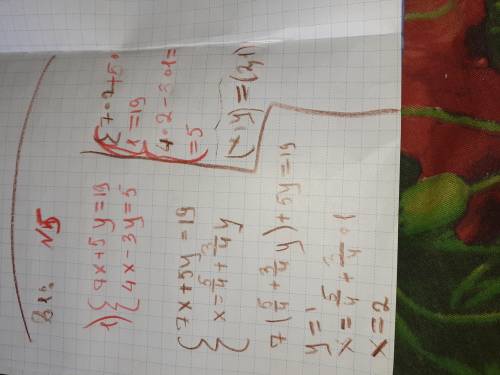 №5
1) { 7x+5y=19
4x-3y=5
{ 7x+5y=19
x=5/4+3/4y
7(5/4+3/4y)+5y=19
y=1
x=5/4+3/4·1
x=2
{ 7·2+5·
1=19
4·2-3·1=
=5
(x,y)=(2,1)